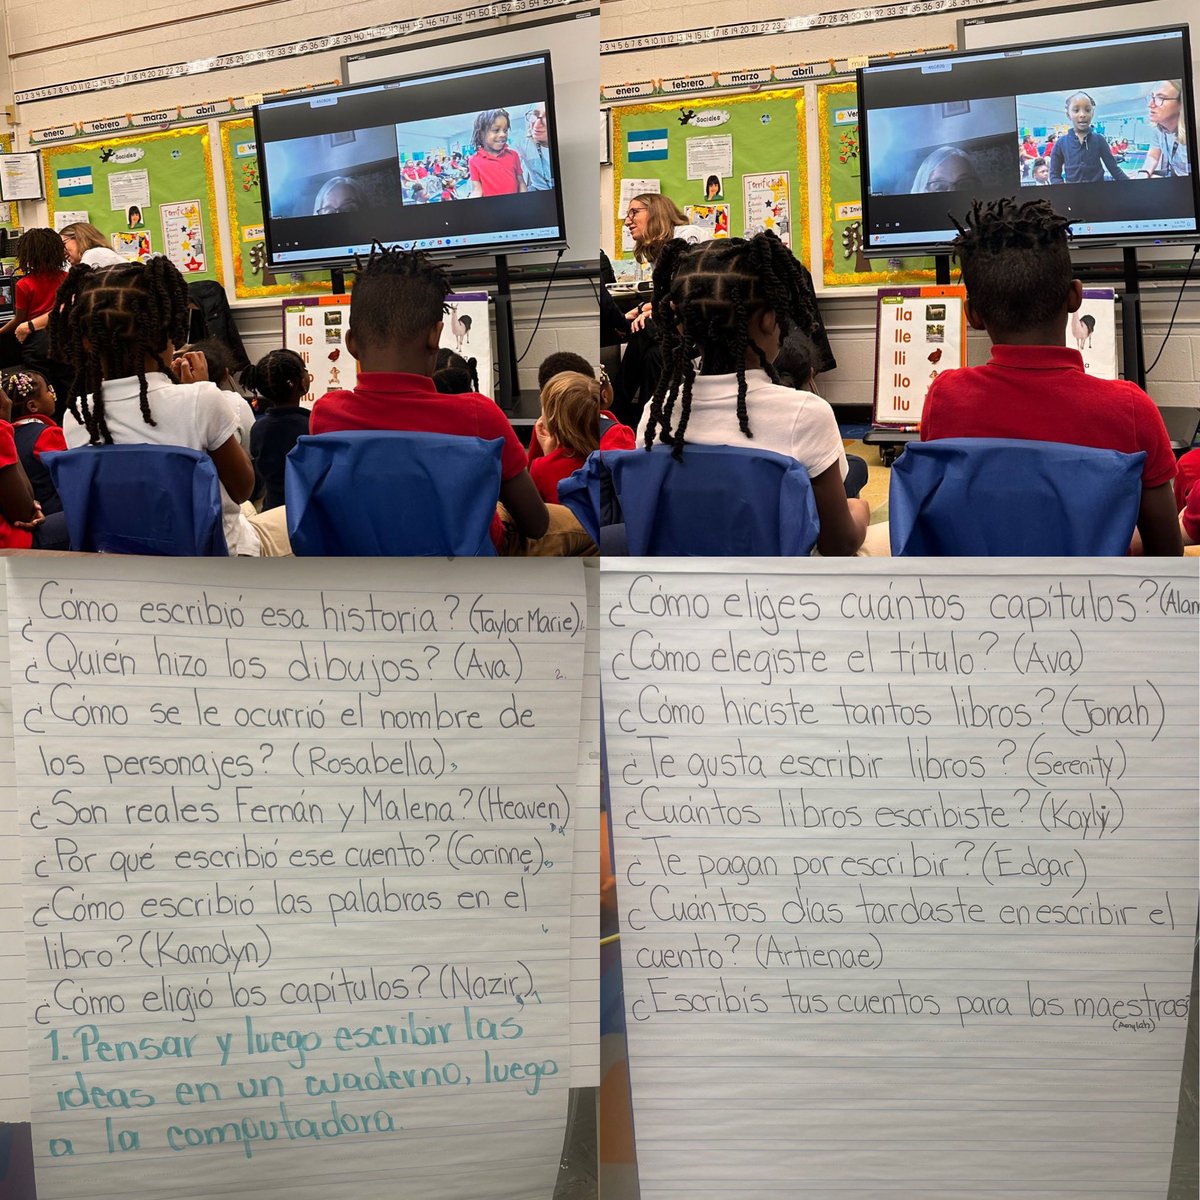 enero
febrero
marzo
abril
Sociales
lla
lle
lli
llo
llu
enero
febrero
marzo
abril
muy
Sociales
lla
lle
lli
llo
llu
¿Cómo escribió esa historia? (Taylor Marie) 1.
¿Quién hizo los dibujos? (Ava) 2.
¿Cómo se le ocurrió el nombre de
los personajes? (Rosabella) 3
¿Son reales Fernán y Malena? (Heaven)
¿Por qué escribió ese cuento? (Corinne) 5
¿Cómo escribió las palabras en el
libro? (Kamdyn) 6
¿Cómo eligió los capítulos? (Nazir) 7
1. Pensar y luego escribir las
ideas en un cuaderno, luego
a la computadora.
¿Cómo eliges cuántos capítulos? (Alan
¿Cómo elegiste el título? (Ava)
¿Cómo hiciste tantos libros? (Jonah)
¿Te gusta escribir libros? (Serenity)
¿Cuántos libros escribiste?
¿Te pagan por escribir? (Edgar)
¿Cuántos días tardaste en escribir el
cuento? (Artienae)
¿Escribís tus cuentos para las maestras?